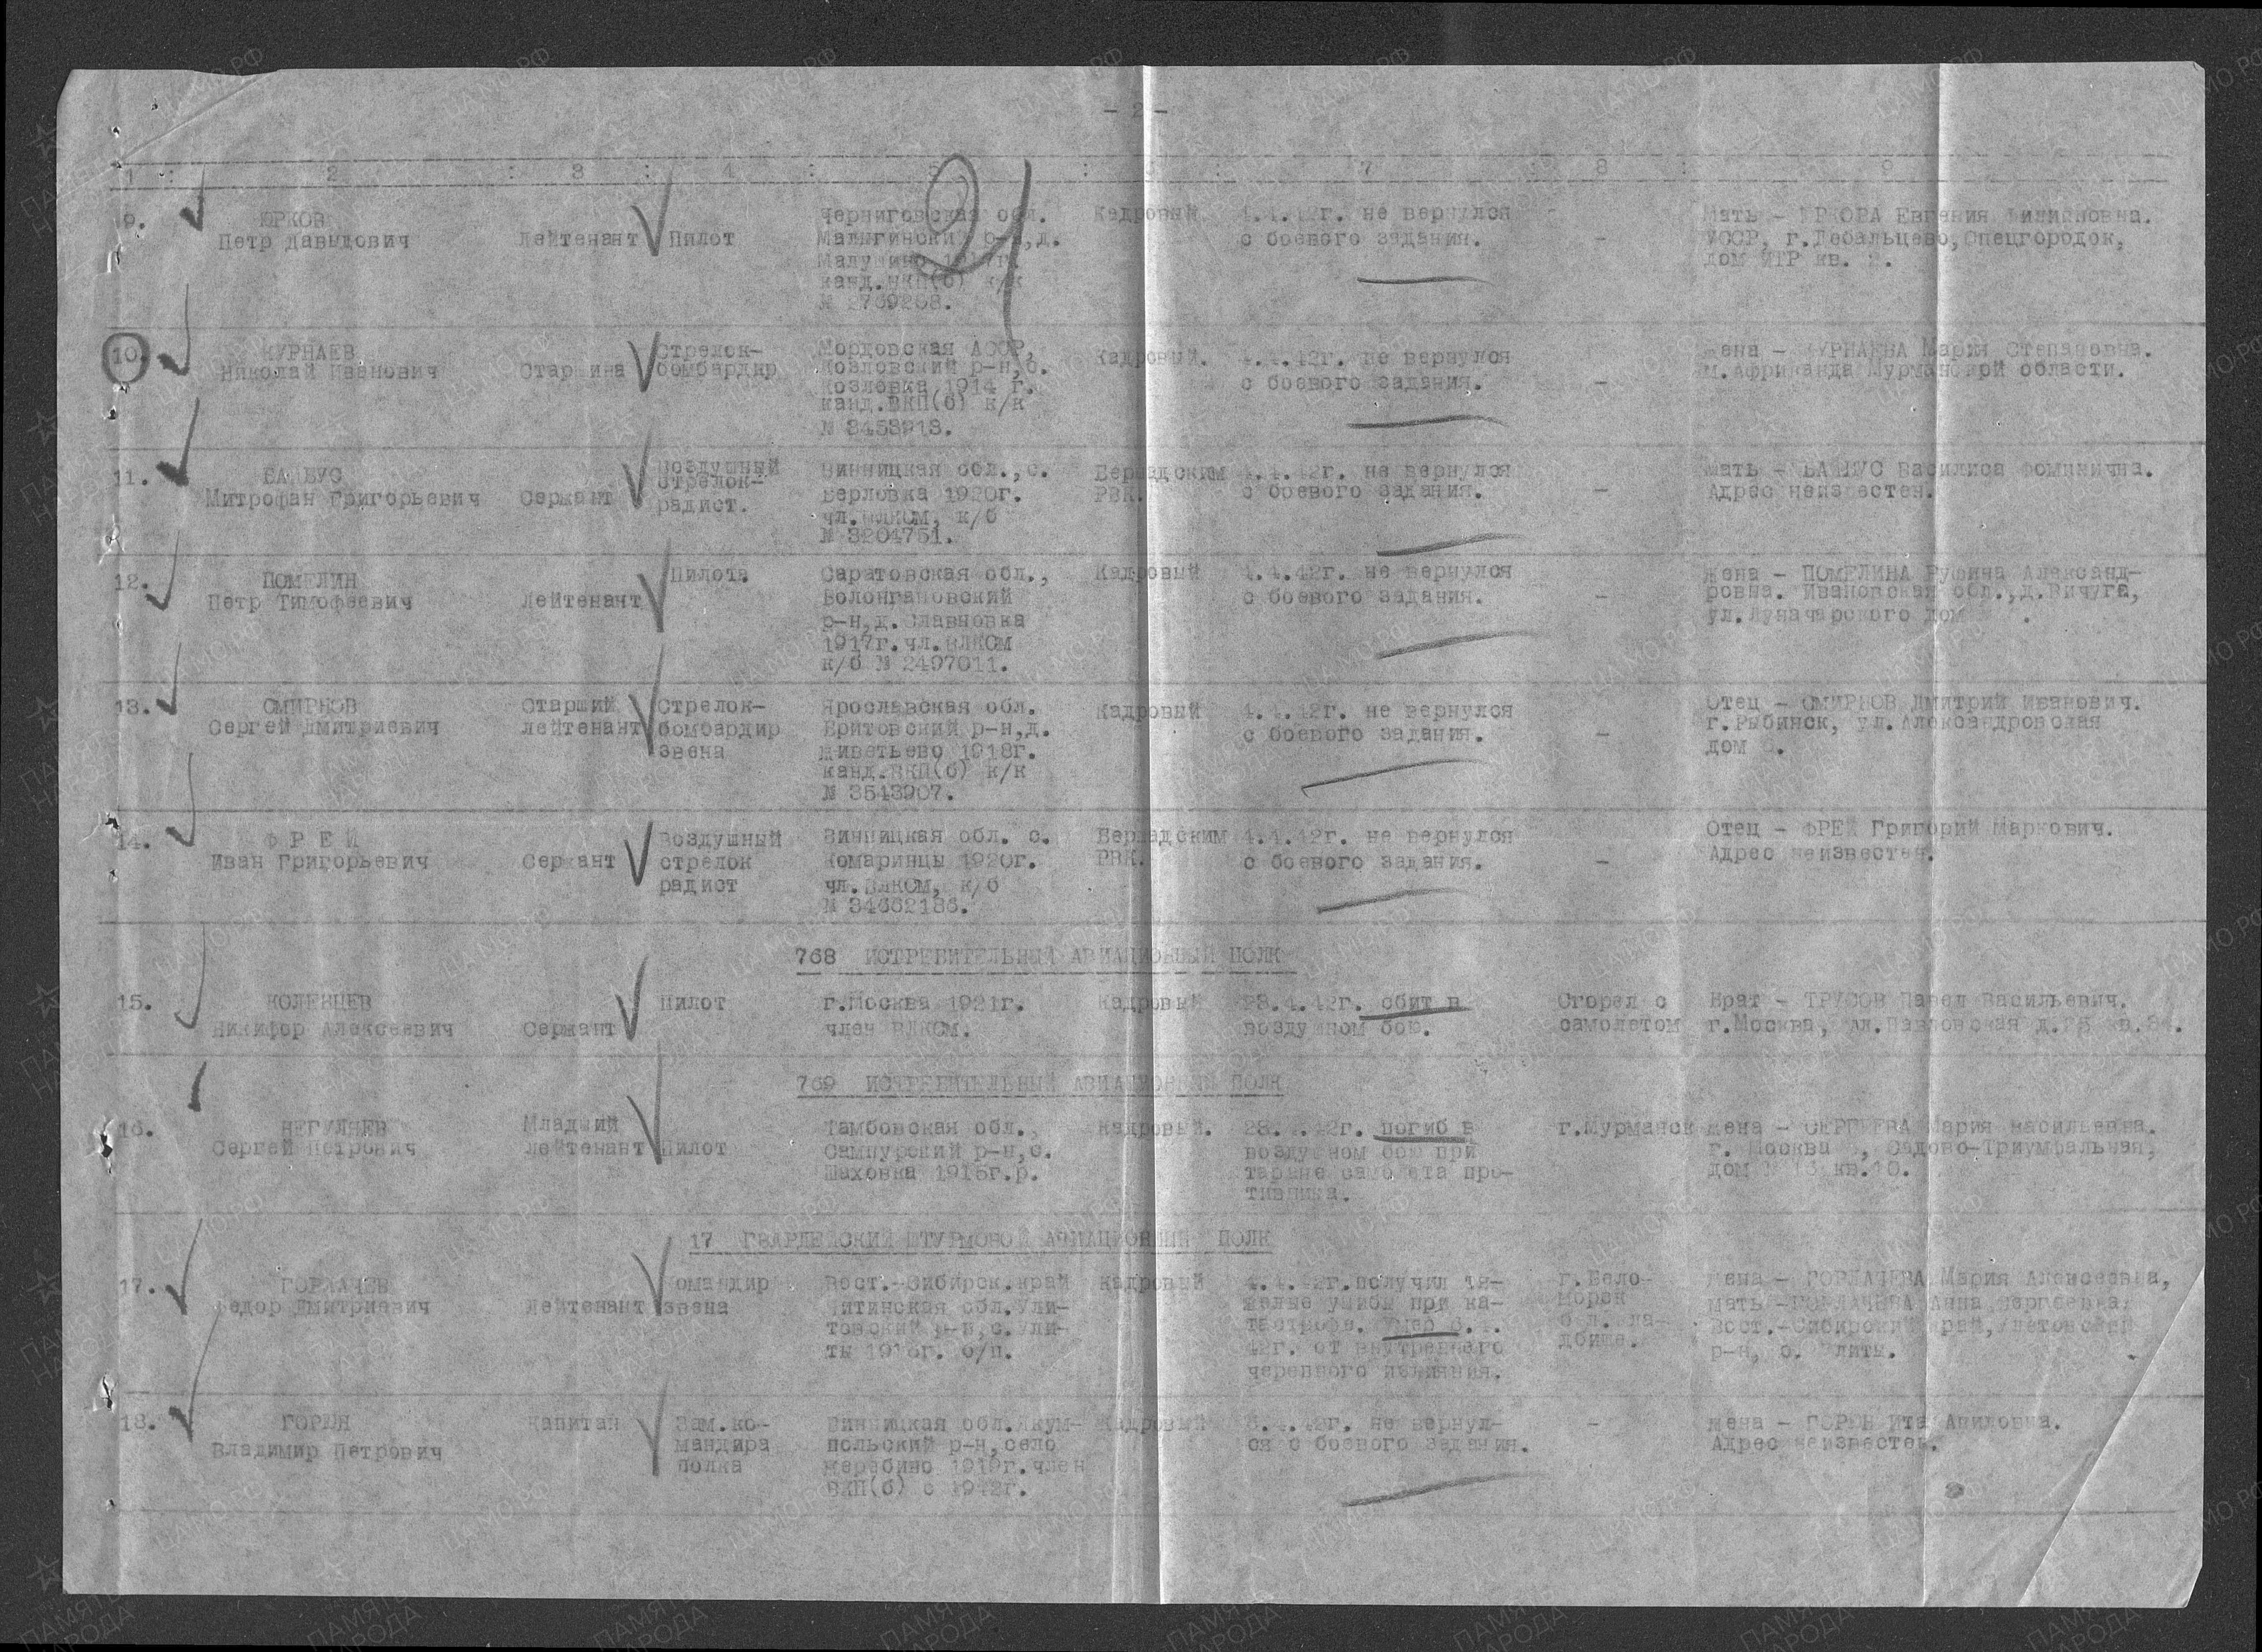 - 2 -
1 : 2 : 3 : 4 : 5 : 6 : 7 : 8 : 9
9. ЮРКОВ
Петр Давыдович
Лейтенант
Пилот
Черниговская обл.
р-н, д.
канд.ВКП(б) к/к
№ 2769268.
Кадровый
4.4.42г. не вернулся
с боевого задания.
-
Мать - ЮРКОВА Евгения
УССР, г.Дебальцево, Спецгородок,
дом ИТР кв. 2.
21
10. КУРНАЕВ
Николай Иванович
Старшина
Стрелок-
бомбардир
Мордовская АССР,
Козловский р-н,с.
Козловка 1914 г.
канд.ВКП(б) к/к
№ 3453913.
Кадровый.
4.4.42г. не вернулся
с боевого задания.
-
Жена - КУРНАЕВА Мария Степановна.
м.Африканда Мурманской области.
11.
Митрофан Григорьевич
Сержант
Воздушный
стрелок-
радист.
Винницкая обл.,с.
Берловка 1920г.
чл.ВЛКСМ, к/б
№ 3204751.
Бершадским
РВК.
4.4.42г. не вернулся
с боевого задания.
-
Мать - Василиса
Адрес неизвестен.
12. ПОМЕЛИН
Петр Тимофеевич
Лейтенант
Пилот
Саратовская обл.,
р-н,д. Славновка
1917г.чл.ВЛКСМ
к/б № 2497011.
Кадровый
4.4.42г. не вернулся
с боевого задания.
-
Жена - ПОМЕЛИНА Руфина Александ-
ровна. Ивановская обл.,д.Вичуга,
ул.Луначарского дом
13. СМИРНОВ
Сергей Дмитриевич
Старший
лейтенант
Стрелок-
бомбардир
звена
Ярославская обл.
р-н,д.
1918г.
канд.ВКП(б) к/к
№ 3543907.
Кадровый
4.4.42г. не вернулся
с боевого задания.
-
Отец - СМИРНОВ Дмитрий Иванович.
г.Рыбинск, ул.Александровская
дом
14. Ф Р Е Й
Иван Григорьевич
Сержант
Воздушный
стрелок
радист
Винницкая обл. с.
Комаринцы 1920г.
чл.ВЛКСМ, к/б
№ 34662186.
Бершадским
РВК.
4.4.42г. не вернулся
с боевого задания.
-
Отец - ФРЕЙ Григорий Маркович.
Адрес неизвестен.
768 ИСТРЕБИТЕЛЬНЫЙ АВИАЦИОННЫЙ ПОЛК
15.
Никифор Алексеевич
Сержант
Пилот
г.Москва 1921г.
член ВЛКСМ.
Кадровый
28.4.42г. сбит в
воздушном бою.
Сгорел с
самолетом
Брат - ТРУСОВ Павел Васильевич.
г.Москва,
769 ИСТРЕБИТЕЛЬНЫЙ АВИАЦИОННЫЙ ПОЛК
16. НЕГУЛЯЕВ
Сергей Петрович
Младший
лейтенант
Пилот
Тамбовская обл.,
Сампурский р-н,с.
Шаховка 1915г.р.
Кадровый.
28.4.42г. погиб в
воздушном бою при
таране самолета про-
тивника.
г.Мурманск
Жена - СЕРГЕЕВА Мария Васильевна.
г. Москва Садово-Триумфальная,
дом кв.10.
17 ГВАРДЕЙСКИЙ ШТУРМОВОЙ АВИАЦИОННЫЙ ПОЛК
17. ГОРЛАЧЕВ
Федор Дмитриевич
Лейтенант
Командир
звена
Вост.-Сибирск.край
Читинская обл.Ули-
товский р-н,с.Ули-
ты б/п.
Кадровый
4.4.42г.получил тя-
желые ушибы при ка-
тастрофе. Умер
42г. от внутреннего
черепного излияния.
г.Бело-
морск
кла-
дбище.
Жена - ГОРЛАЧЕВА Мария Алексеевна,
мать - ГОРЛАЧЕВА Анна Сергеевна.
Вост.-Сибирский край,
р-н, с. Улиты.
18. ГОРЕН
Владимир Петрович
Капитан
Зам.ко-
мандира
полка
Винницкая обл.Якум-
польский р-н,село
Жеребино 1919г.член
ВКП(б) с 1942г.
Кадровый
не вернул-
ся с боевого задания.
-
Жена - ГОРЕН Ита
Адрес неизвестен.